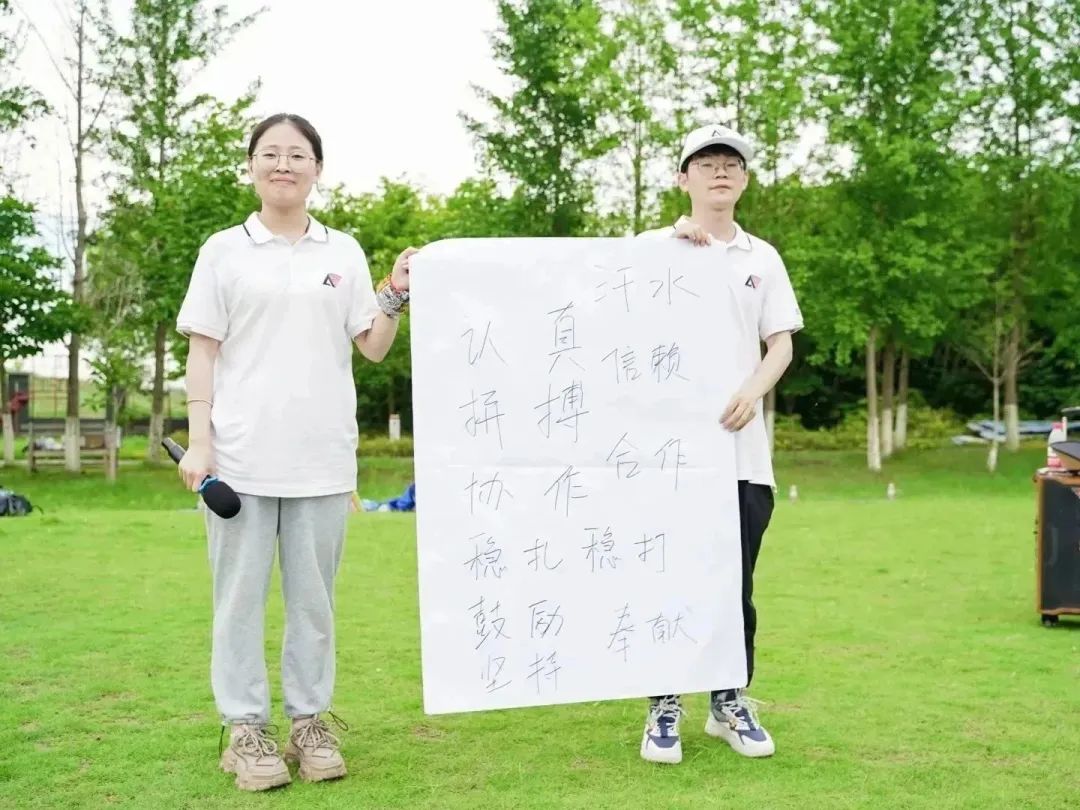 汗水
认真
信赖
拼搏
合作
协作
稳扎稳打
鼓励
奉献
坚持